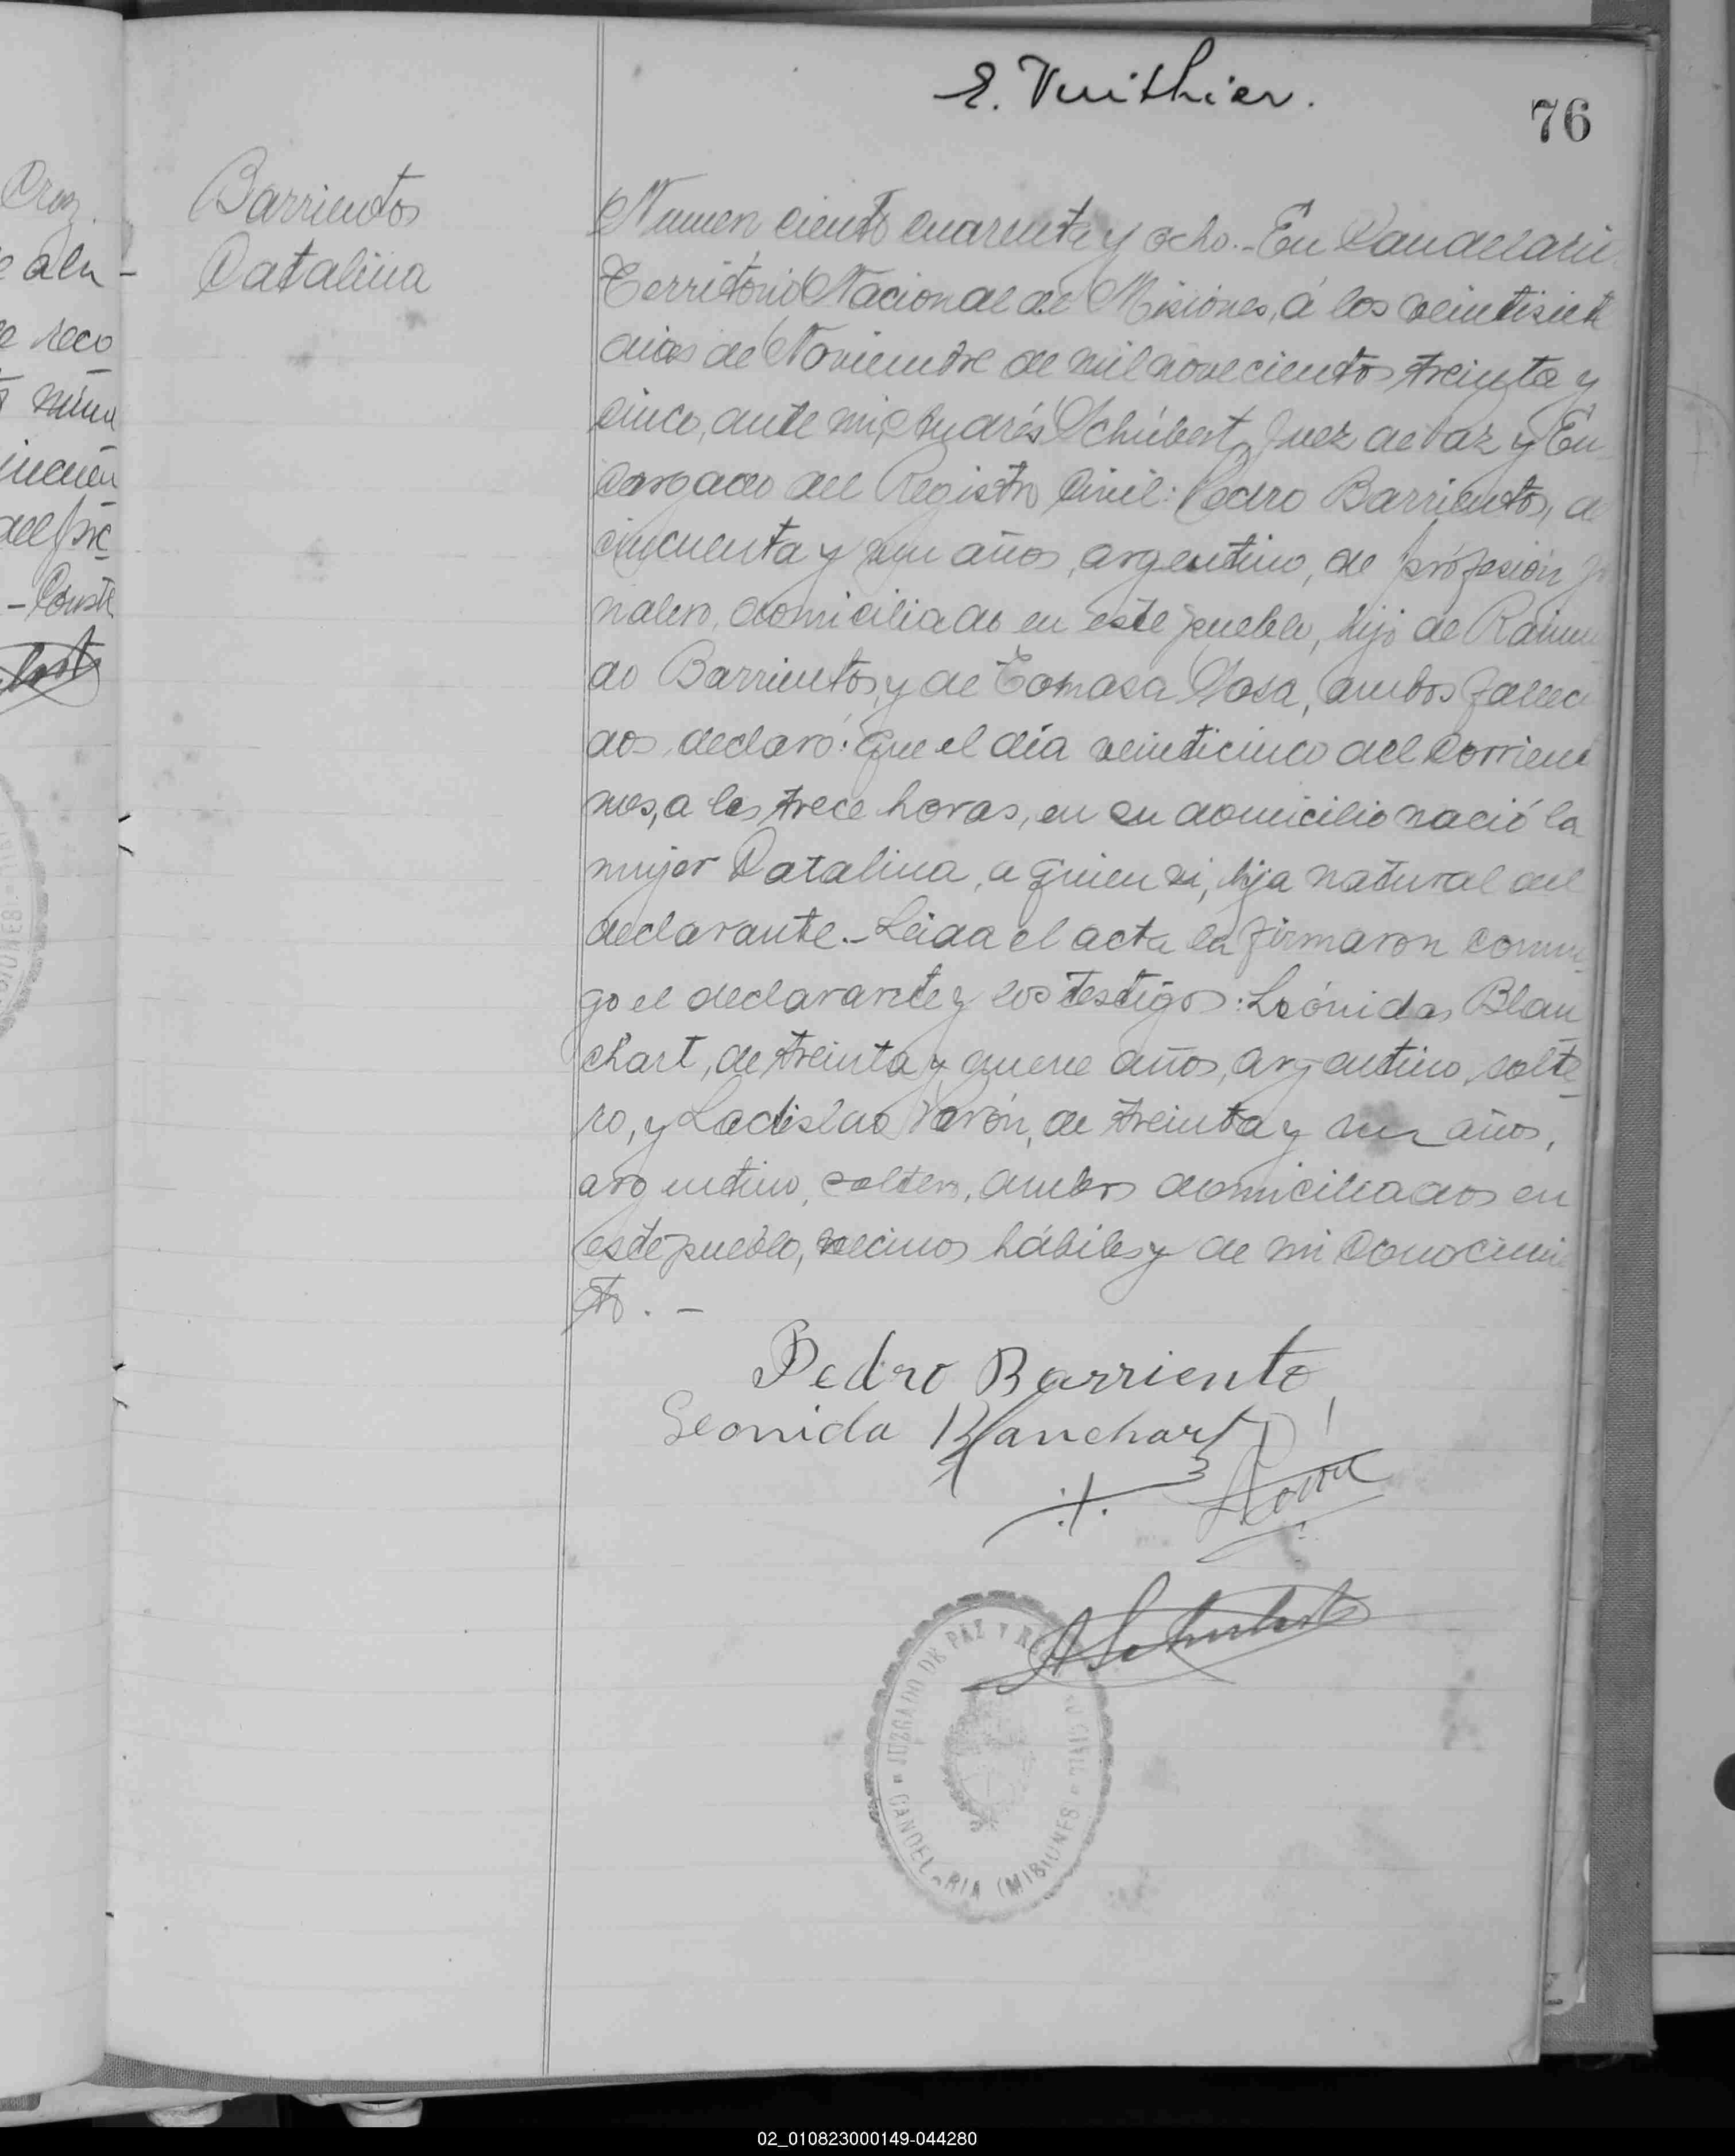 E. Vuithier.
76
Barrientos
Catalina
Numero ciento cuarenta y ocho.- En Candelaria
Territorio Nacional de Misiones, á los veintisiete
dias de Noviembre de mil novecientos treinta y
cinco, ante mi, Andrés Schubert, Juez de Paz y En
cargado del Registro Civil: Pedro Barrientos, de
cincuenta y un años, argentino, de profesión jor
nalero, domiciliado en este pueblo, hijo de Raimun
do Barrientos, y de Tomasa Sosa, ambos falleci
dos, declaró: que el día veinticinco del corriente
mes, a las trece horas, en su domicilio nació la
mujer Catalina, a quien vi, hija natural del
declarante.- Leida el acta la firmaron conmi
go el declarante y los testigos: Leónidas Blan
chart, de treinta y nueve años, argentino, solte
ro, y Ladislao, de treinta y un años,
argentino, soltero, ambos domiciliados en
este pueblo, vecinos hábiles y de mi conocimie
to. -
Pedro Barriento
Leonida Blanchart
A Schubert
JUZGADO DE PAZ Y REGISTRO CIVIL
CANDELARIA (MISIONES)
Cruz.
-
reco
núme
del pre
- Conste
02_010823000149-044280